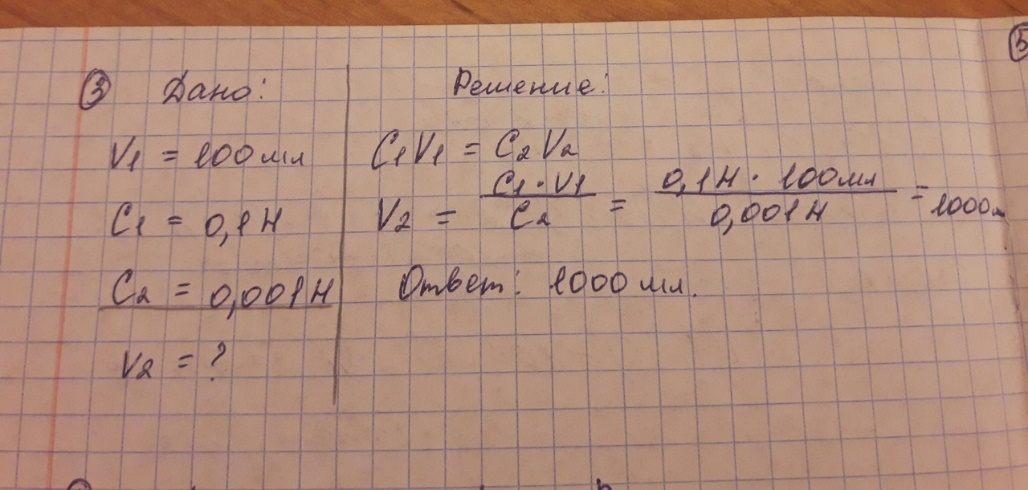 ③ Дано:
V1 = 100 мл
C1 = 0,1 Н
C2 = 0,001 Н
V2 = ?
Решение:
C1V1 = C2V2
V2 = C1·V1 / C2 = 0,1Н · 100 мл / 0,001Н = 1000 м
Ответ: 1000 мл.
⑤